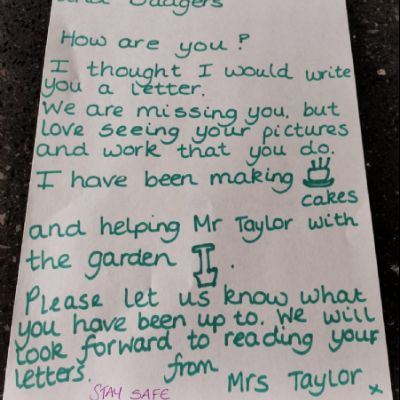 and Badgers
How are you?
I thought I would write
you a letter.
We are missing you, but
love seeing your pictures
and work that you do.
I have been making
cakes
and helping Mr Taylor with
the garden .
Please let us know what
you have been up to. We will
look forward to reading your
letters.
from
Mrs Taylor x
STAY SAFE